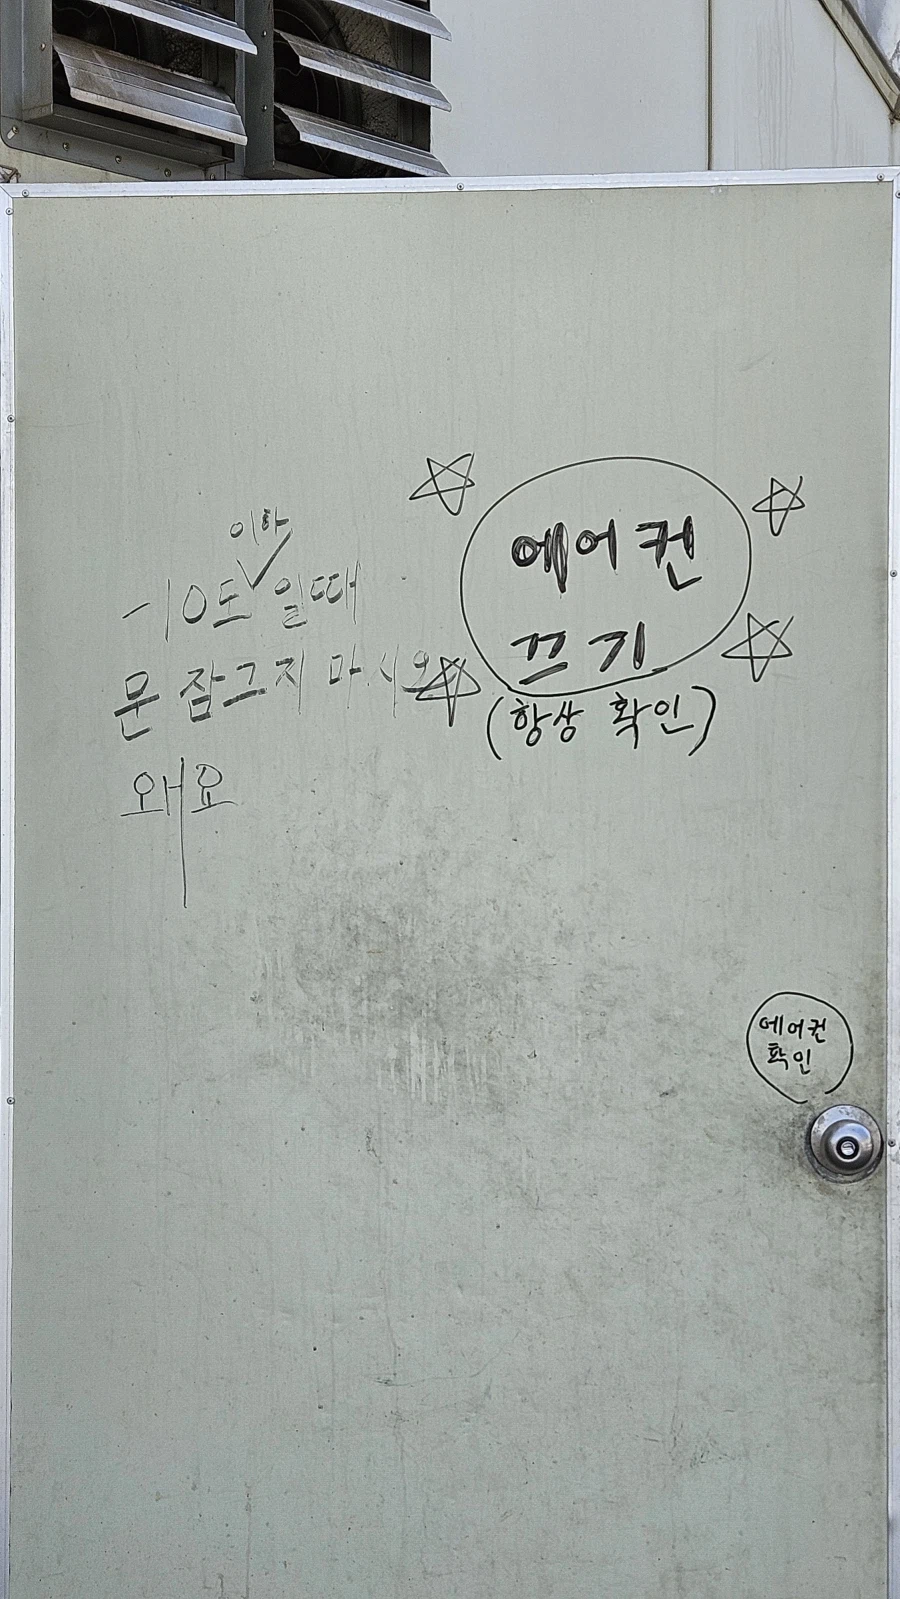 -10도 이하 일때
문 잠그지 마시오
왜요
에어컨
끄기
(항상 확인)
에어컨
확인